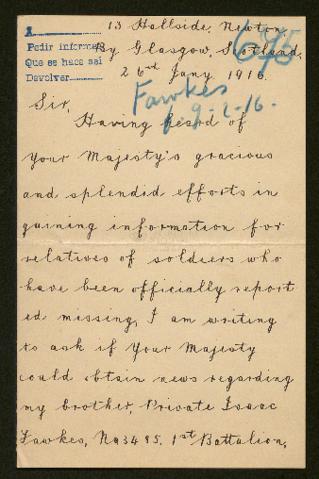 13 Hallside, Newton
A
Pedir informes
By Glasgow, Scotland.
Que se hace saí
Devolver
26th Jany 1916.
695
Fawkes
9-2-16.
Sir,
Having heard of
Your Majesty's gracious
and splendid efforts in
gaining information for
relatives of soldiers who
have been officially report
ed missing, I am writing
to ask if Your Majesty
could obtain news regarding
my brother, Private Isaac
Fawkes, No 3485. 1st Battalion,